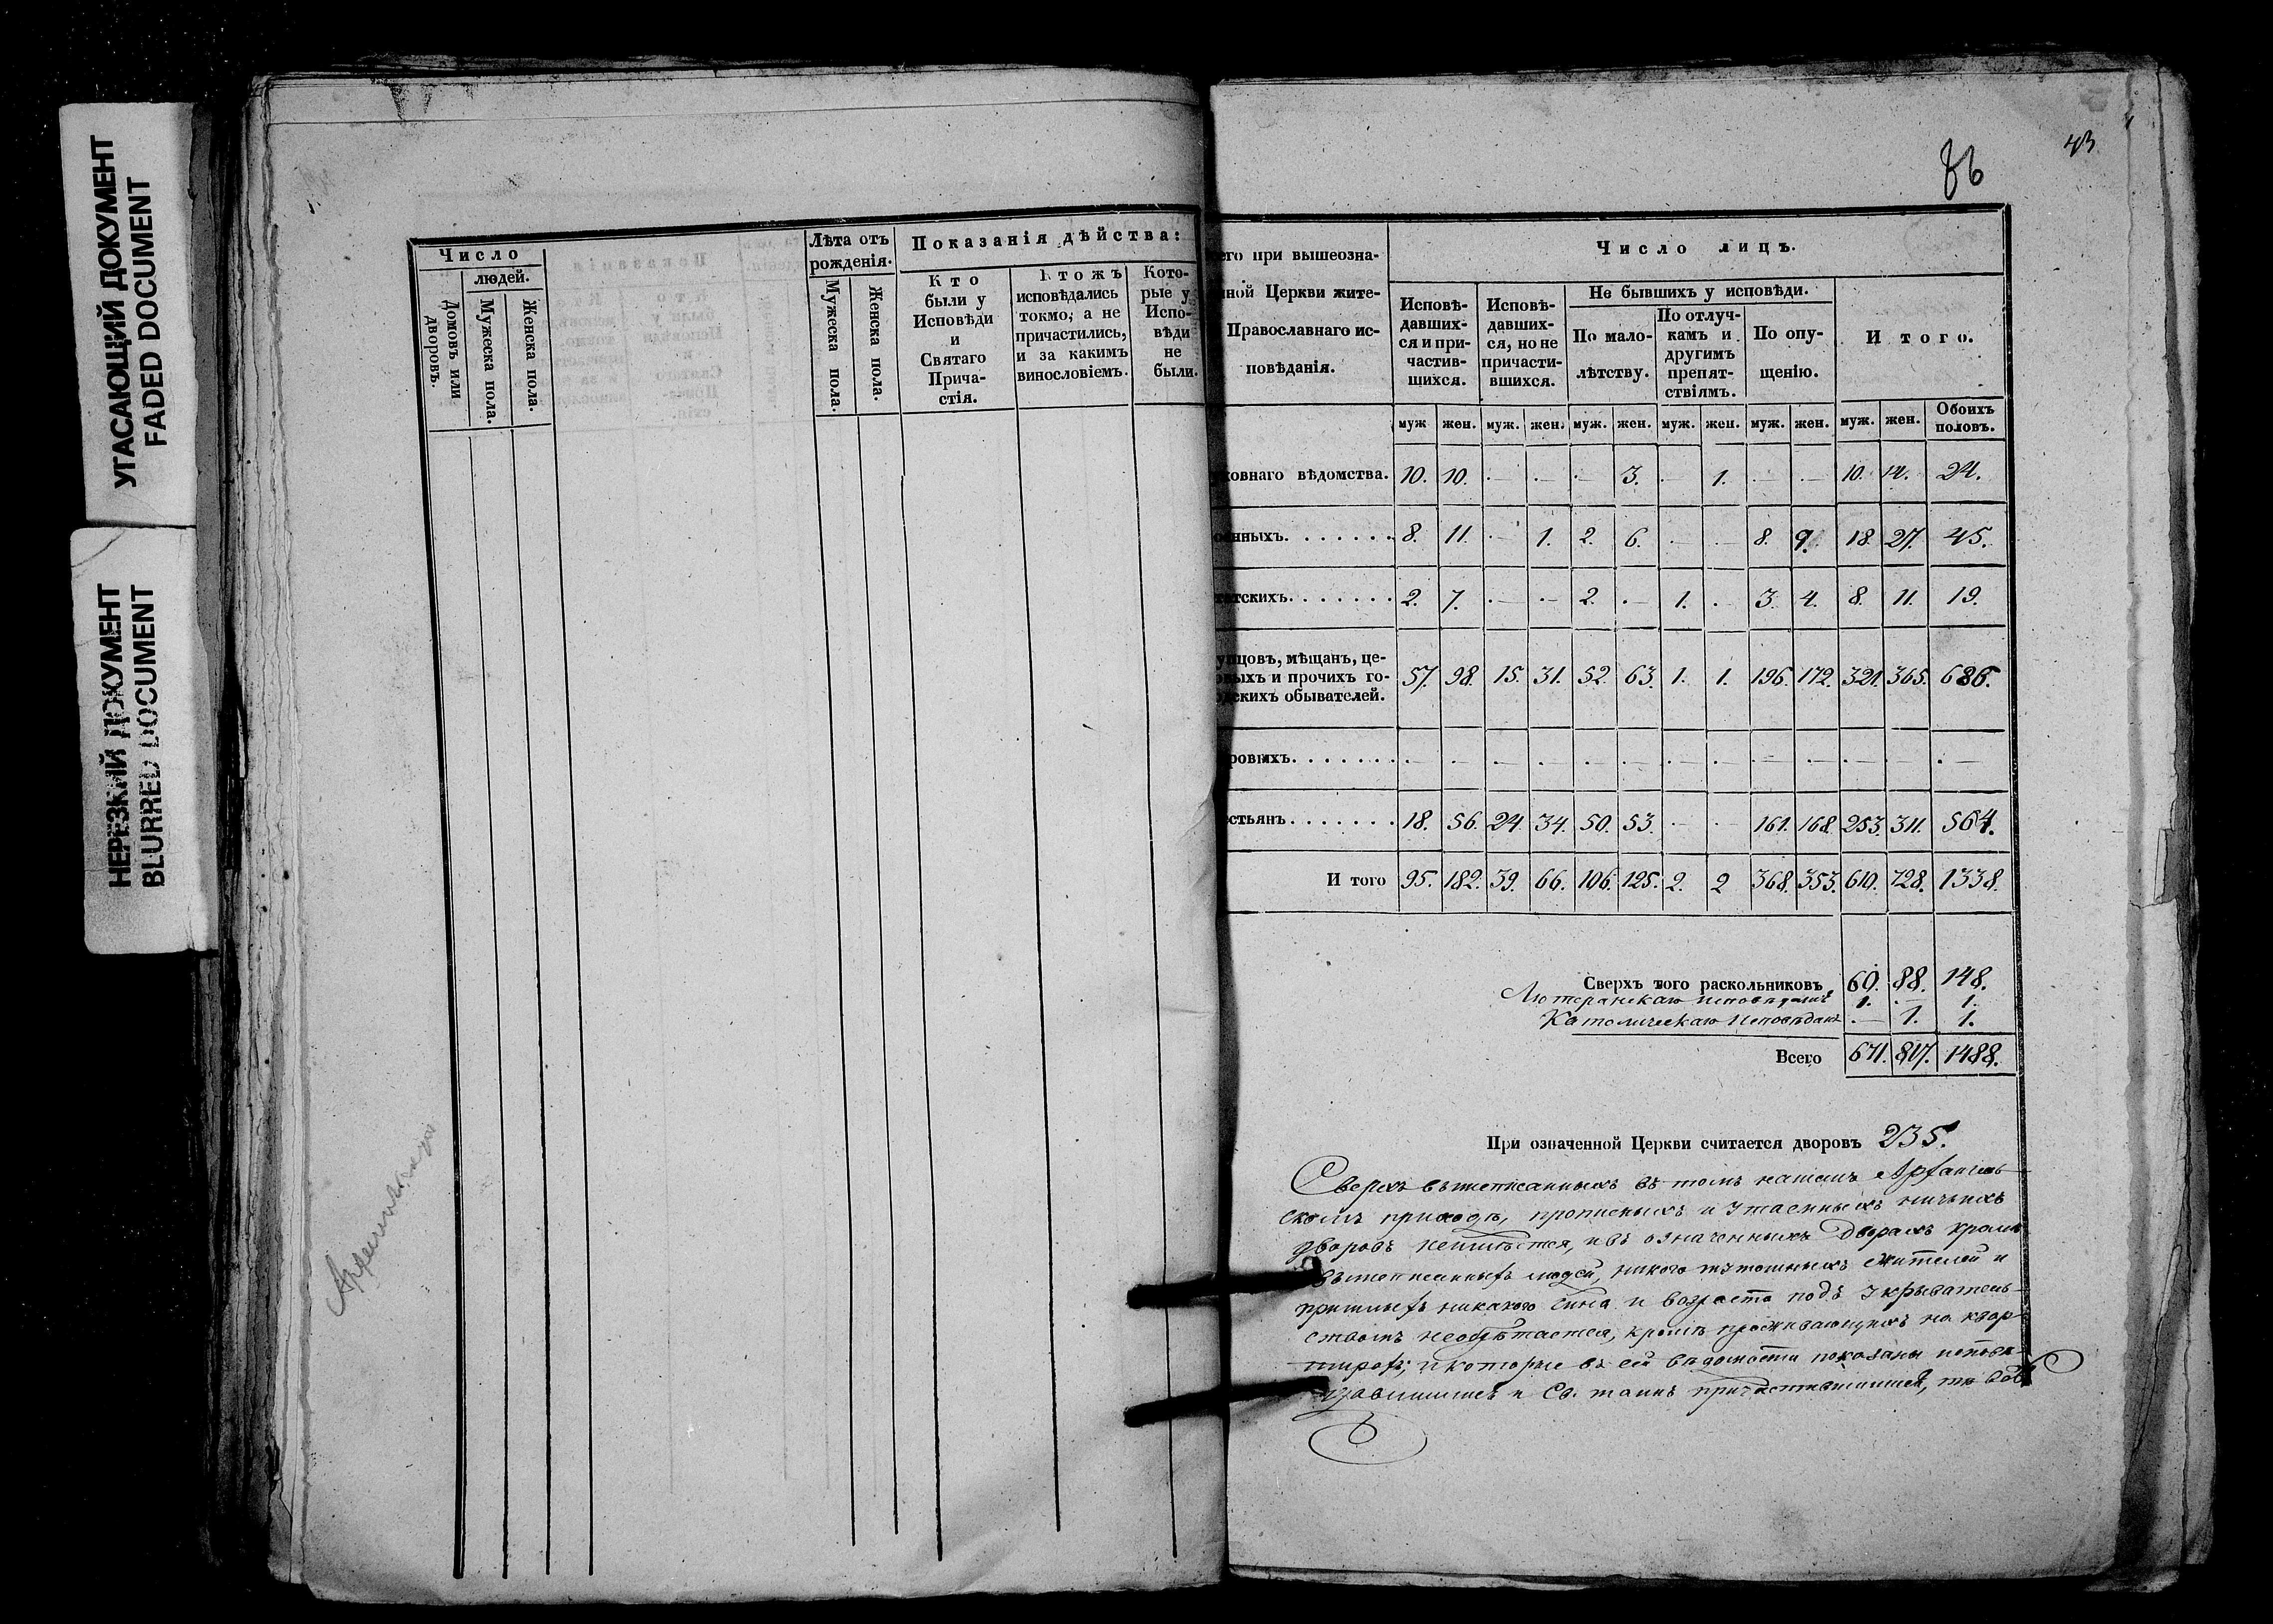 УГАСАЮЩИЙ ДОКУМЕНТ
FADED DOCUMENT
НЕРЕЗКИЙ ДОКУМЕНТ
BLURRED DOCUMENT
Число
людей.
Домовъ или дворовъ.
Мужеска пола.
Женска пола.
Лѣта отъ рожденія.
Мужеска пола.
Женска пола.
Показанія дѣйства:
Кто
были у
Исповѣди
и
Святаго
Прича-
стія.
Ктожъ
исповѣдались
токмо, а не
причастились,
и за какимъ
винословіемъ.
Кото-
рые у
Испо-
вѣди
не
были.
86
43
его при вышеозна-
ной Церкви жите-
Православнаго ис-
повѣданія.
Число лицъ.
Исповѣ-
давших-
ся и при-
частив-
шихся.
Исповѣ-
давших-
ся, но не
причасти-
вшихся.
Не бывшихъ у исповѣди.
По мало-
лѣтству.
По отлуч-
камъ и
другимъ
препят-
ствіямъ.
По опу-
щенію.
И того.
муж жен. муж. жен. муж. жен. муж. жен. муж. жен. муж. жен. Обоихъ половъ.
ховнаго вѣдомства. 10. 10. — — — 3. — 1. — — 10. 14. 24.
оенныхъ. 8. 11. — 1. 2. 6. — — 8. 9. 18. 27. 45.
татскихъ. 2. 7. — — 2. — 1. — 3. 4. 8. 11. 19.
упцовъ, мѣщанъ, це-
овыхъ и прочихъ го-
одскихъ обывателей. 57. 98. 15. 31. 52. 63. 1. 1. 196. 172. 321. 365. 686.
ровыхъ. — — — — — — — — — — — — —
стьянъ. 18. 56. 24. 34. 50. 53. — — 161. 168. 253. 311. 564.
И того 95. 182. 39. 66. 106. 125. 2. 2 368. 353. 610. 728. 1338.
Сверхъ того раскольниковъ 60. 88. 148.
Лютеранскаго исповѣданія 1. — 1.
Католическаго Исповѣдан — 1. 1.
Всего 671. 817. 1488.
При означенной Церкви считается дворовъ 235.
Сверхъ вышеписанныхъ въ томъ нашемъ Архангель-
скомъ приходѣ, прописныхъ и утаенныхъ ничьихъ
дворовъ неимѣется, ивъ означенныхъ Дворахъ кромѣ
вышеписанныхъ людей, никого тутошныхъ жителей и
пришлыхъ никакого чина и возраста подъ укрыватель-
ствомъ необрѣтается, кромѣ проживающихъ на квар-
тирахъ; икоторые въ сей вѣдомости показаны исповѣ-
давшимися и Св. таинъ причастившимися, тѣ